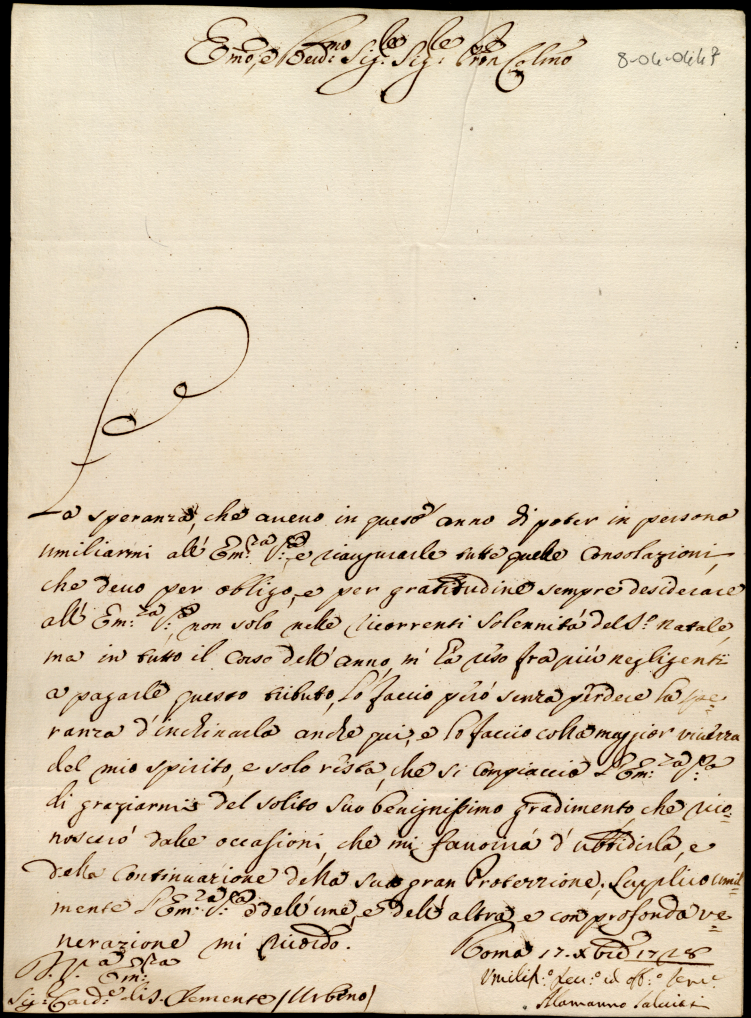 Em̃o, e Reud:mo Sig:re Sig:re Pron Colmo
8-04-0447
La speranza, che aueuo in questo anno di poter in persona
umiliarmi all' Em:za V:ra e riaugurarle tutte quelle Consolazioni,
che deuo per obligo, e per gratitudine sempre desiderare
all' Em:za V:ra, non solo nelle ricorrenti Solennità del S:o natale
ma in tutto il Corso dell' anno, m' ha reso fra più negligenti
a pagarle questo tributo, Lo faccio però senza perdere la spe=
ranza d'inchinarla anche qui, e lo faccio colla maggior viuezza
del mio spirito, e solo resta, che si Compiaccia L'Em:za V:ra
di graziarmi del solito suo benignissimo gradimento, che rico=
noscerò dalle occasioni, che mi fauorirà d'ubbidirla, e
della Continuazione della sua gran Protezzione, Supplico umil=
mente L'Em:za V:ra dell'une, e dell' altra, e con profonda ve=
nerazione mi ricordo. Roma 17. Xbre 1728
V:ra Em:za
Umiliss:o Deu:o ed obb:o Seru:e
Sig: Card:e di S. Clemente / Urbino /
Alamanno Saluiati